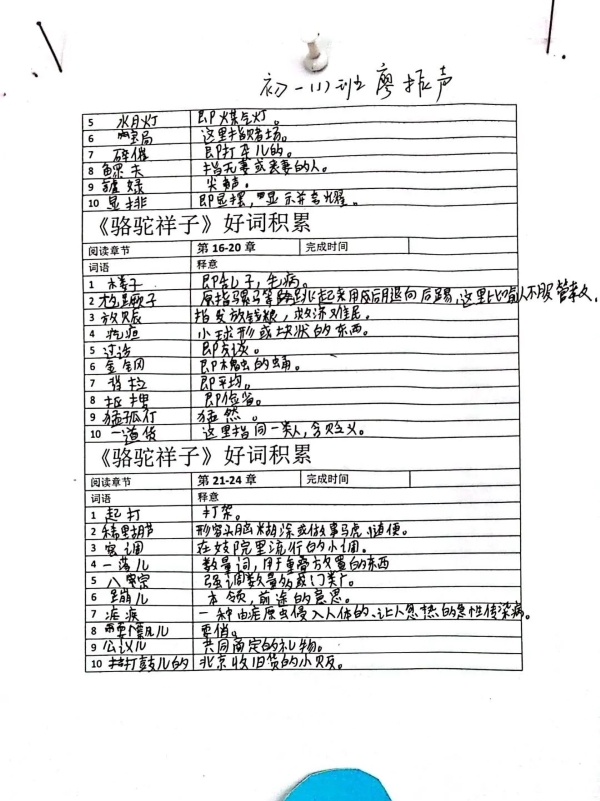 初一(1)班 廖振声
5 水月灯 即煤气灯。
6 宝局 这里指赌场。
7 碎催 即打杂儿的。
8 鳏夫 指无妻或丧妻的人。
9 尖声。
10 显排 即显摆,显示并夸耀。
《骆驼祥子》好词积累
阅读章节 第 16-20 章 完成时间
词语 释意
1 楼子 即乱子,毛病。
2 尥蹶子 原指骡马等跳起来用后腿向后踢,这里比喻人不服管束。
3 放赈 指发放钱粮,救济难民。
4 疙疸 小球形或块状的东西。
5 过话 即交谈。
6 金钢 即槐虫的蛹。
7 背拉 即平均。
8 抠搜 即俭省。
9 猛孤仃 猛然。
10 一道货 这里指同一类人,含贬义。
《骆驼祥子》好词积累
阅读章节 第 21-24 章 完成时间
词语 释意
1 起打 打架。
2 稀里胡节 形容头脑糊涂或做事马虎、随便。
3 窑调 在妓院里流行的小调。
4 一落儿 数量词,用于重叠放置的东西
5 强调数量多或门类广。
6 蹦儿 本领,前途的意思。
7 疟疾 一种由疟原虫侵入人体的、让人忽热的急性传染病。
8 要俏。
9 公议儿 共同商定的礼物。
10 打鼓儿的 北京收旧货的小贩。